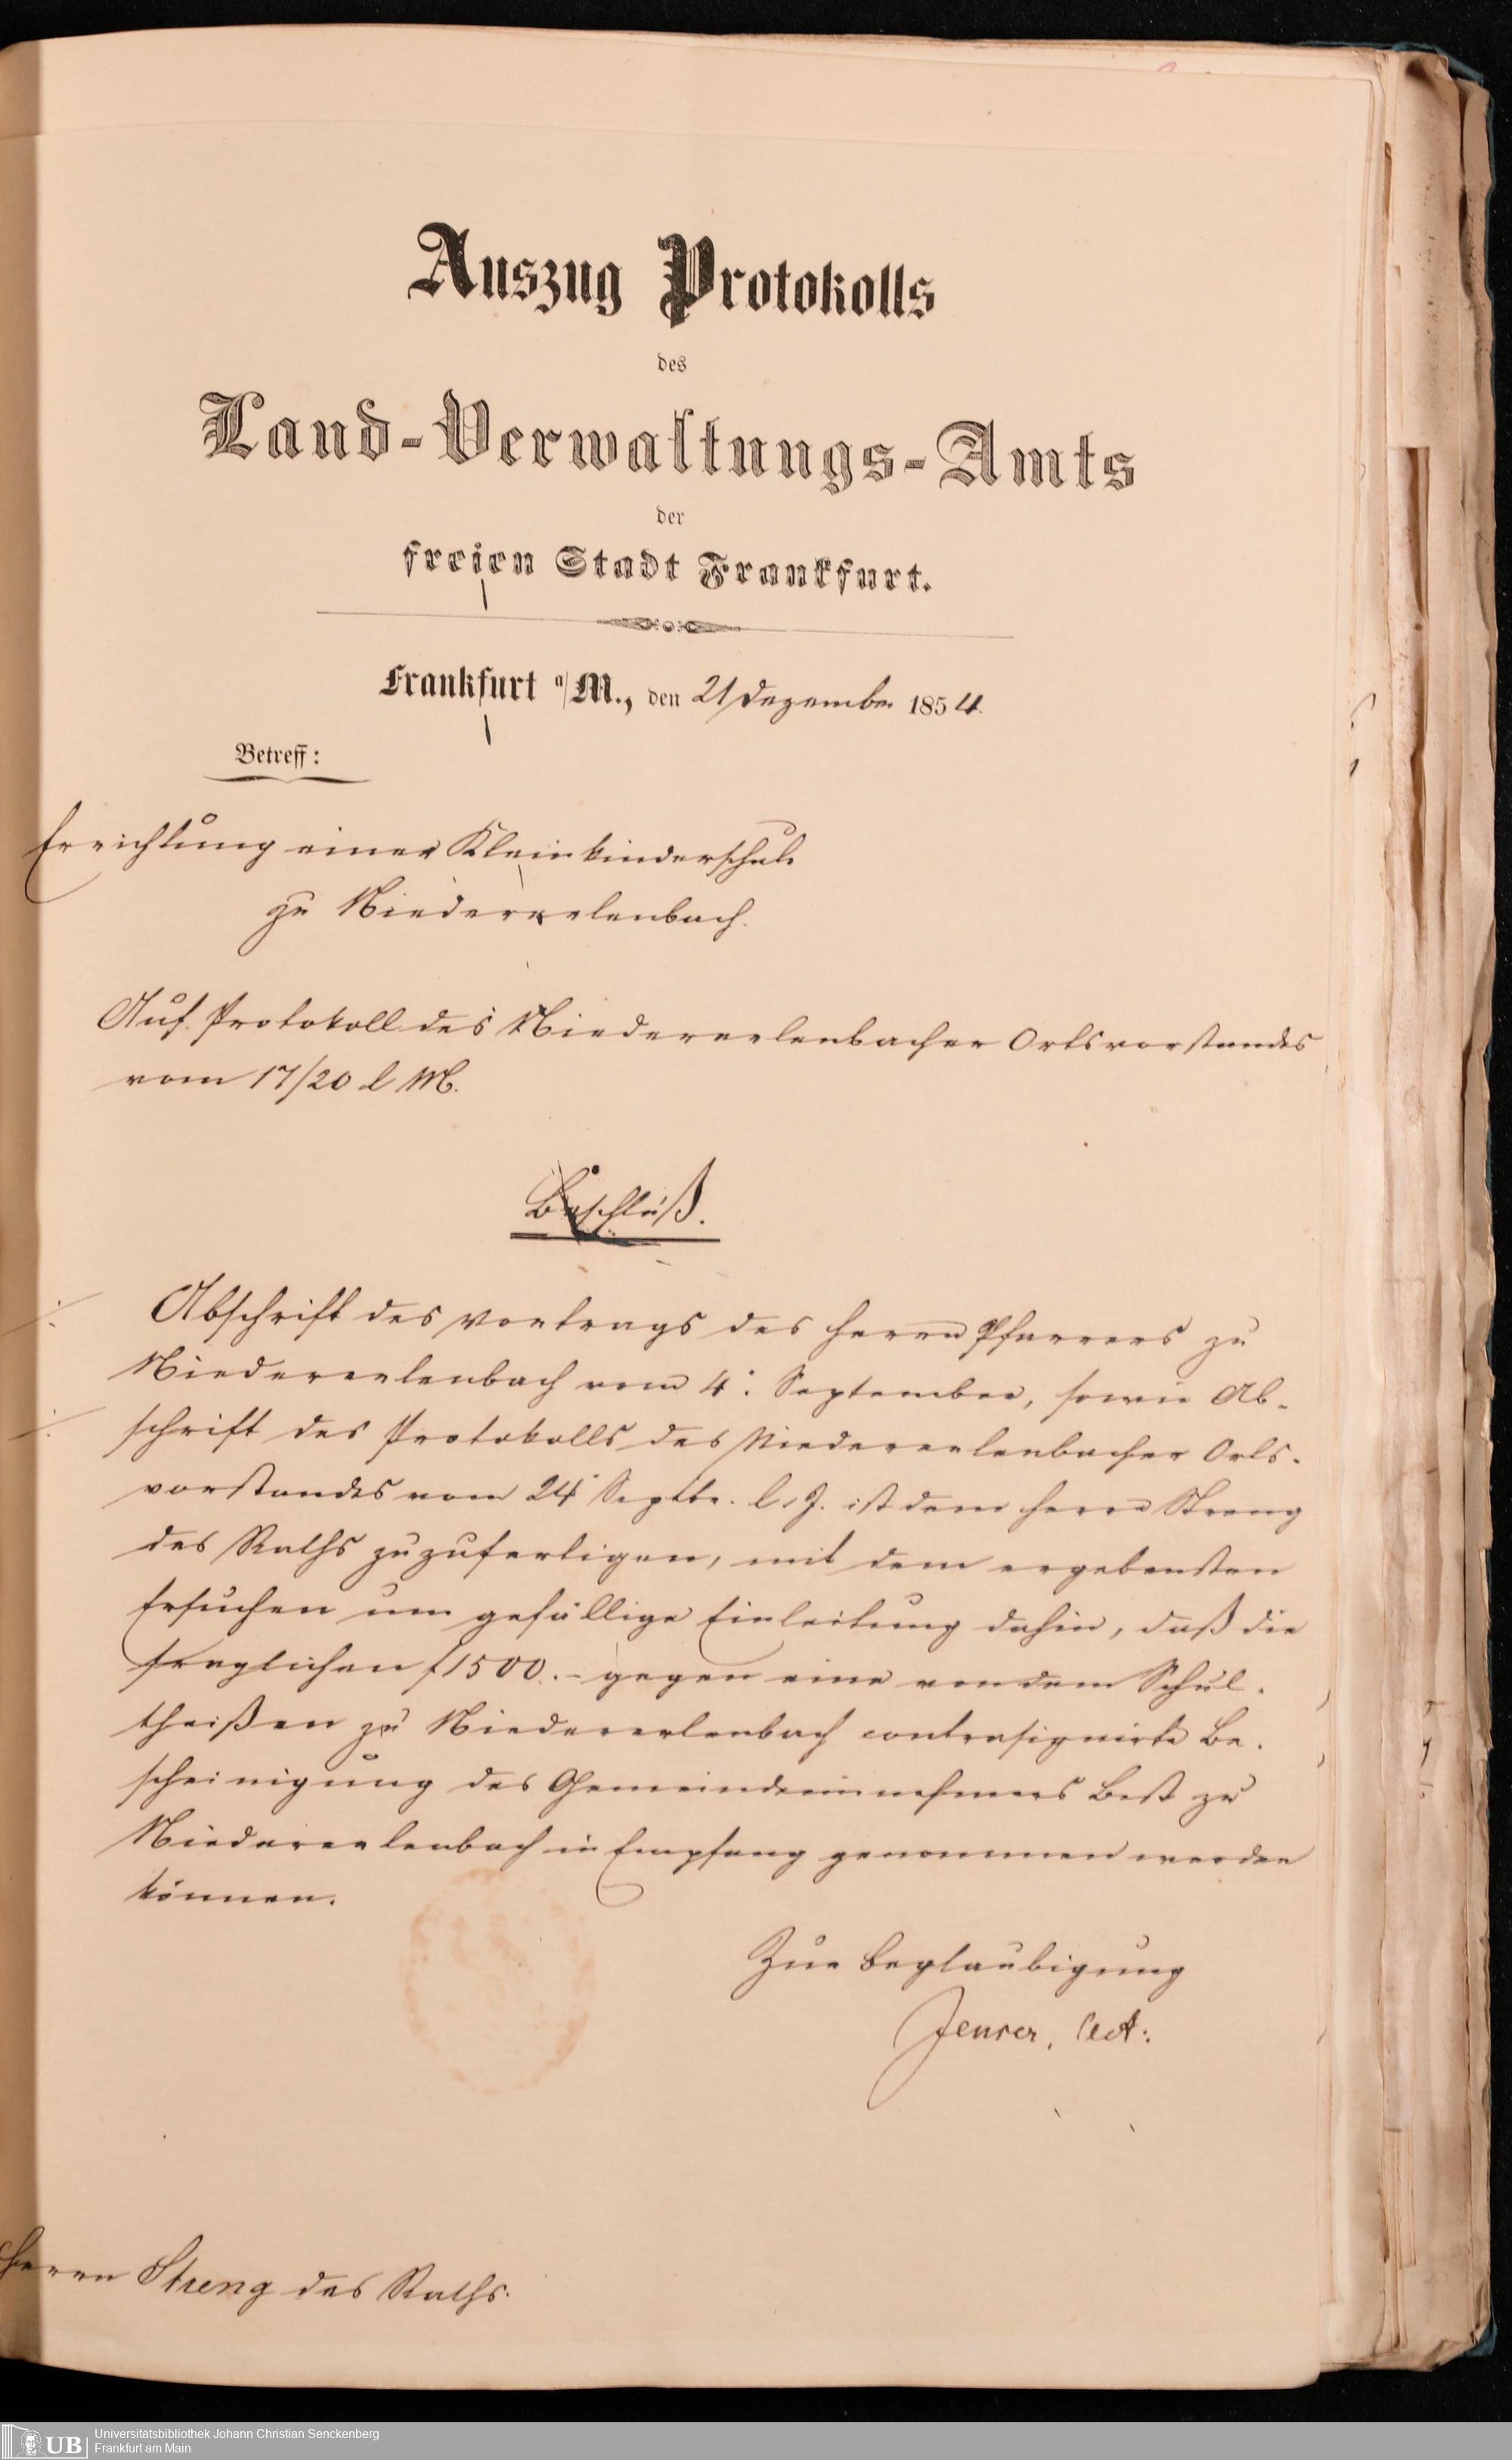 Auszug Protokolls
des
Land-Verwaltungs-Amts
der
freien Stadt Frankfurt.
Frankfurt a/M., den 21 Dezember 1854.
Betreff:
Errichtung einer Kleinkinderschule
zu Niedererlenbach.
Auf Protokoll des Niedererlenbacher Ortsvorstandes
vom 17/20 l M.
Beschluß.
Abschrift des Vortrags des Herrn Pfarrers zu
Niedererlenbach vom 4. September, sowie Ab-
schrift des Protokolls des Niedererlenbacher Orts-
vorstandes vom 24 Septbr. l. J. ist dem Herrn Streng
des Raths zuzufertigen, mit dem ergebensten
Ersuchen um gefällige Einleitung dahin, daß die
fraglichen f 1500.- gegen eine von dem Schul-
theißen zu Niedererlenbach contrasignirte Be-
scheinigung des Gemeindeeinnehmers Best zu
Niedererlenbach in Empfang genommen werden
können.
Zur Beglaubigung
Act:
Herrn Streng des Raths.
UB
Universitätsbibliothek Johann Christian Senckenberg
Frankfurt am Main